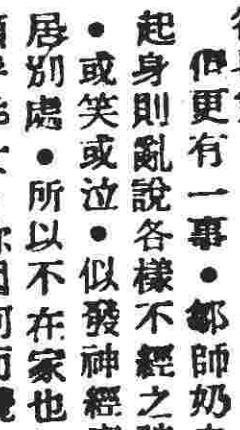 但更有一事●鄒師奶
起身則亂說各樣不經之
●或笑或泣●似發神經
居別處●所以不在家也